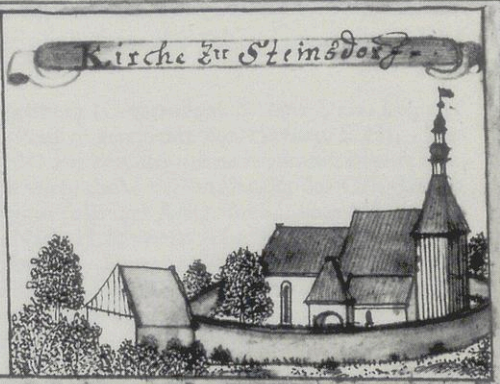 Kirche zu Steinsdorf.